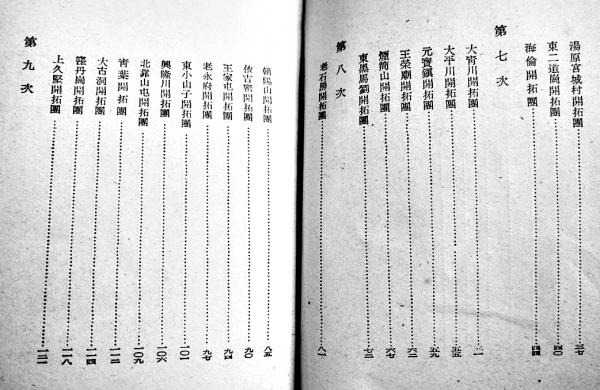 湯原宮城村開拓團……三七
東二道崗開拓團……四〇
海倫開拓團……四四
第七次
大青川開拓團……一一
大平川開拓團……五五
元寶鎭開拓團……五九
王榮廟開拓團……六三
煙筒山開拓團……六七
東黑馬劉開拓團……七三
第八次
老石房開拓團……八一
朝陽山開拓團……八五
依吉密開拓團……九〇
王家屯開拓團……九四
老永府開拓團……九七
東小山子開拓團……一〇一
興隆川開拓團……一〇六
北靠山屯開拓團……一〇九
靑葉開拓團……一一二
大古洞開拓團……一一四
窪丹崗開拓團……一一八
上久堅開拓團……一二一
第九次